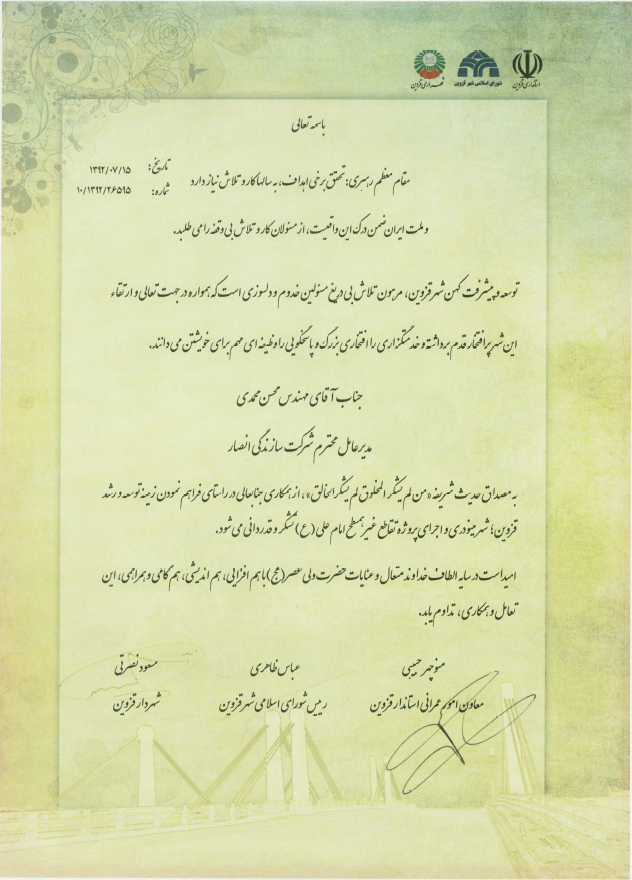 استانداری قزوین
شورای اسلامی شهر قزوین
شهرداری قزوین
باسمه تعالی
تاریخ: ۱۳۹۲/۰۷/۱۵
شماره: ۱۰/۱۳۹۲/۲۶۵۹۵
مقام معظم رهبری: تحقق برخی اهداف، به سالها کار و تلاش نیاز دارد
و ملت ایران ضمن درک این واقعیت، از مسئولان کار و تلاش بی وقفه را می طلبد.
توسعه و پیشرفت کهن شهر قزوین، مرهون تلاش بی دریغ مسئولین خدوم و دلسوزی است که همواره در جهت تعالی و ارتقاء
این شهر پرافتخار قدم برداشته و خدمتگزاری را افتخاری بزرگ و پاسخگویی را وظیفه ای مهم برای خویشتن می دانند.
جناب آقای مهندس محسن محمدی
مدیرعامل محترم شرکت سازندگی انصار
به مصداق حدیث شریفه «من لم یشکر المخلوق لم یشکر الخالق»، از همکاری جنابعالی در راستای فراهم نمودن زمینه توسعه و رشد
قزوین؛ شهر مینودری و اجرای پروژه تقاطع غیر همسطح امام علی (ع) تشکر و قدردانی می شود.
امید است در سایه الطاف خداوند متعال و عنایات حضرت ولی عصر (عج) با هم افزایی، هم اندیشی، هم گامی و همراهی، این
تعامل و همکاری، تداوم یابد.
منوچهر حبیبی
معاون امور عمرانی استاندار قزوین
عباس طاهری
رییس شورای اسلامی شهر قزوین
مسعود نصرتی
شهردار قزوین